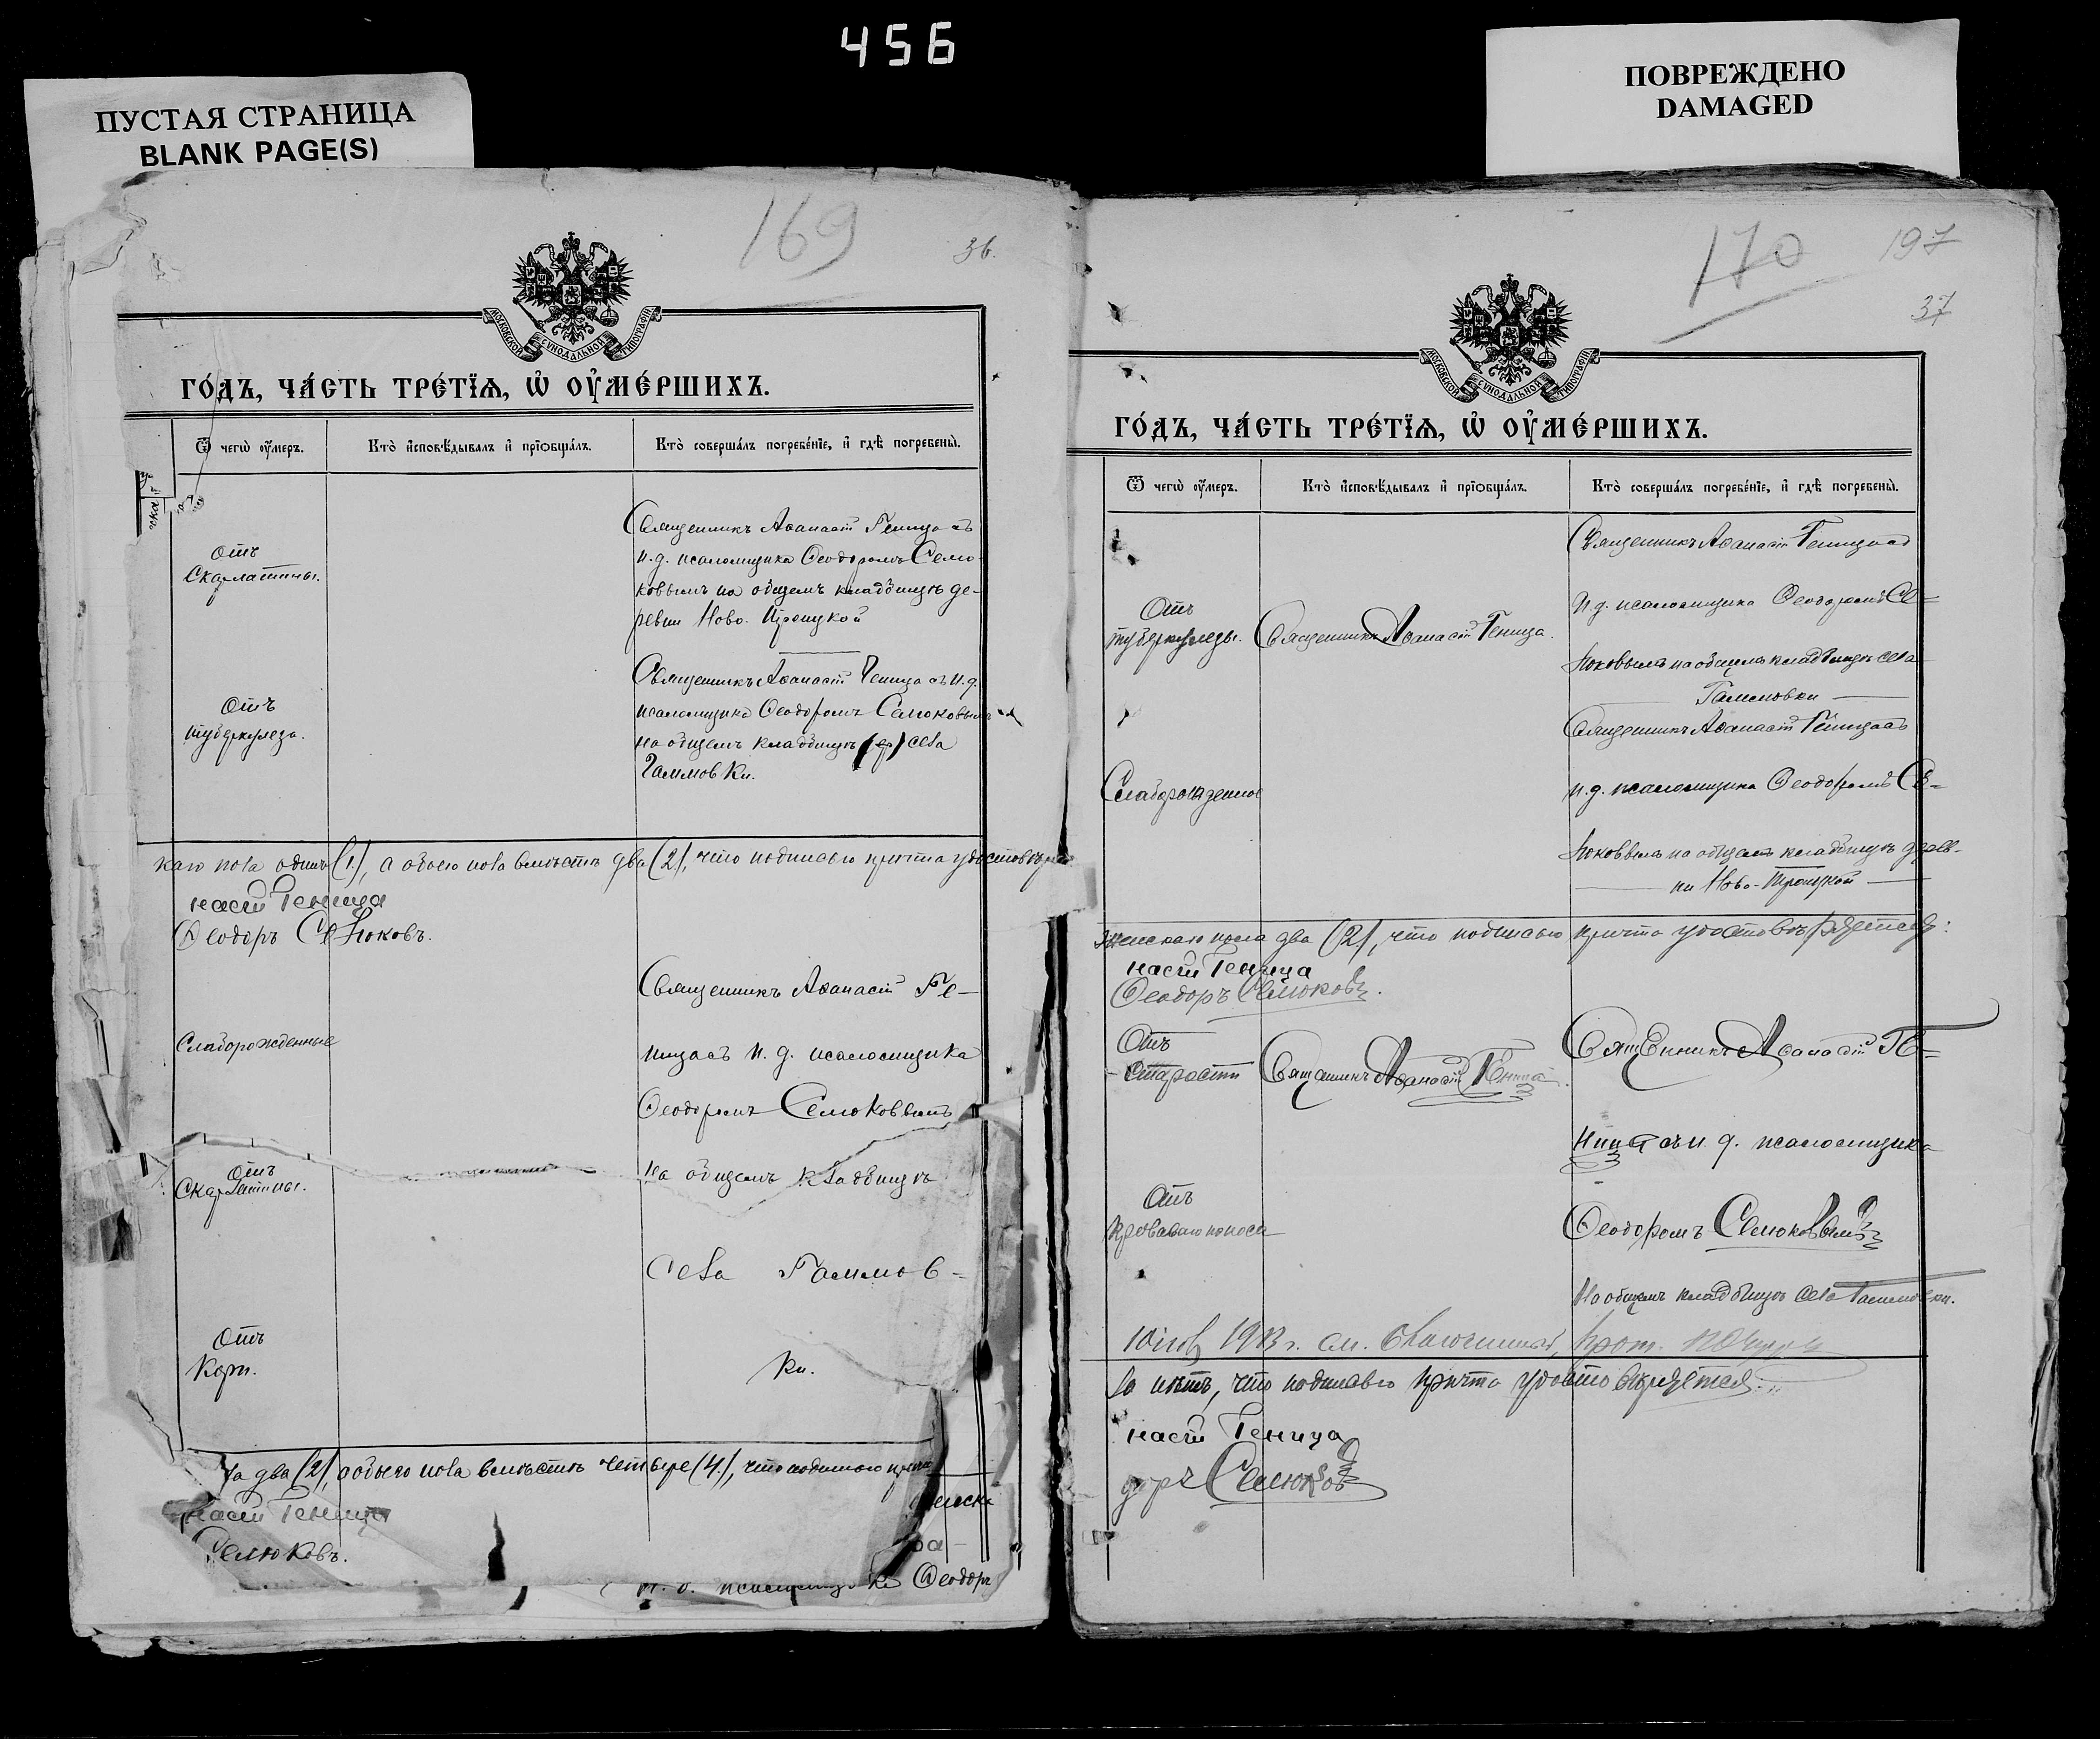 456
ПУСТАЯ СТРАНИЦА
BLANK PAGE(S)
ПОВРЕЖДЕНО
DAMAGED
169
36.
МОСКОВСКОЙ СѴНОДАЛЬНОЙ ТИПОГРАФІИ
ГО́ДЪ, ЧА́СТЬ ТРЕ́ТЇѦ, Ѡ҆ ОУ҆МЕ́РШИХЪ.
Ѿ чегѡ̀ оу҆́меръ.
Кто̀ и҆сповѣ́дывалъ и҆ прїѻбща́лъ.
Кто̀ соверша́лъ погребе́нїе, и҆ гдѣ̀ погребены̀.
Отъ
Скарлатины.
Священникъ Аѳанасій Геница съ
и.д. псаломщика Ѳеодоромъ Селю
ковымъ на общемъ кладбищѣ де-
ревни Ново-Троицкой
Отъ
туберкулеза.
Священникъ Аѳанасій Геница съ и.д.
псаломщика Ѳеодоромъ Селюковымъ
на общемъ кладбищѣ села
Галимовки.
каго пола одинъ (1), а обоего пола вмѣстѣ два (2), что подписью причта удостовѣряе
насій Геница
Ѳеодоръ Селюковъ.
Слаборожденные
Священникъ Аѳанасій Ге-
ница съ и. д. псаломщика
Ѳеодоромъ Селюковымъ
на общемъ кладбищѣ
села Галимов-
ки.
Отъ
Скарлатины.
Отъ
Кори.
ла два (2), а обоего пола вмѣстѣ четыре (4), что подписью прич
насій Геница
Селюковъ.
Ѳеодоръ
170
197
37
МОСКОВСКОЙ СѴНОДАЛЬНОЙ ТИПОГРАФІИ
ГО́ДЪ, ЧА́СТЬ ТРЕ́ТЇѦ, Ѡ҆ ОУ҆МЕ́РШИХЪ.
Ѿ чегѡ̀ оу҆́меръ.
Кто̀ и҆сповѣ́дывалъ и҆ прїѻбща́лъ.
Кто̀ соверша́лъ погребе́нїе, и҆ гдѣ̀ погребены̀.
Отъ
туберкулезы.
Священникъ Аѳанасій Геница.
Священникъ Аѳанасій Геница съ
и.д. псаломщика Ѳеодоромъ Се=
люковымъ на общемъ кладбищѣ села
Галимовки
Слаборожденное
Священникъ Аѳанасій Геница съ
и.д. псаломщика Ѳеодоромъ Се-
люковымъ на общемъ кладбищѣ дерев-
ни Ново-Троицкой
женскаго пола два (2), что подписью причта удостовѣряется:
насій Геница
Ѳеодоръ Селюковъ.
Отъ
старости
Священникъ Аѳанасій Геница.
Священникъ Аѳанасій Ге=
ница съ и. д. псаломщика
Ѳеодоромъ Селюковымъ
на общемъ кладбищѣ села Галимовки.
Отъ
кроваваго поноса
1913 г.
ла нѣтъ, что подписью причта удостовѣряется:
насій Геница
доръ Селюковъ